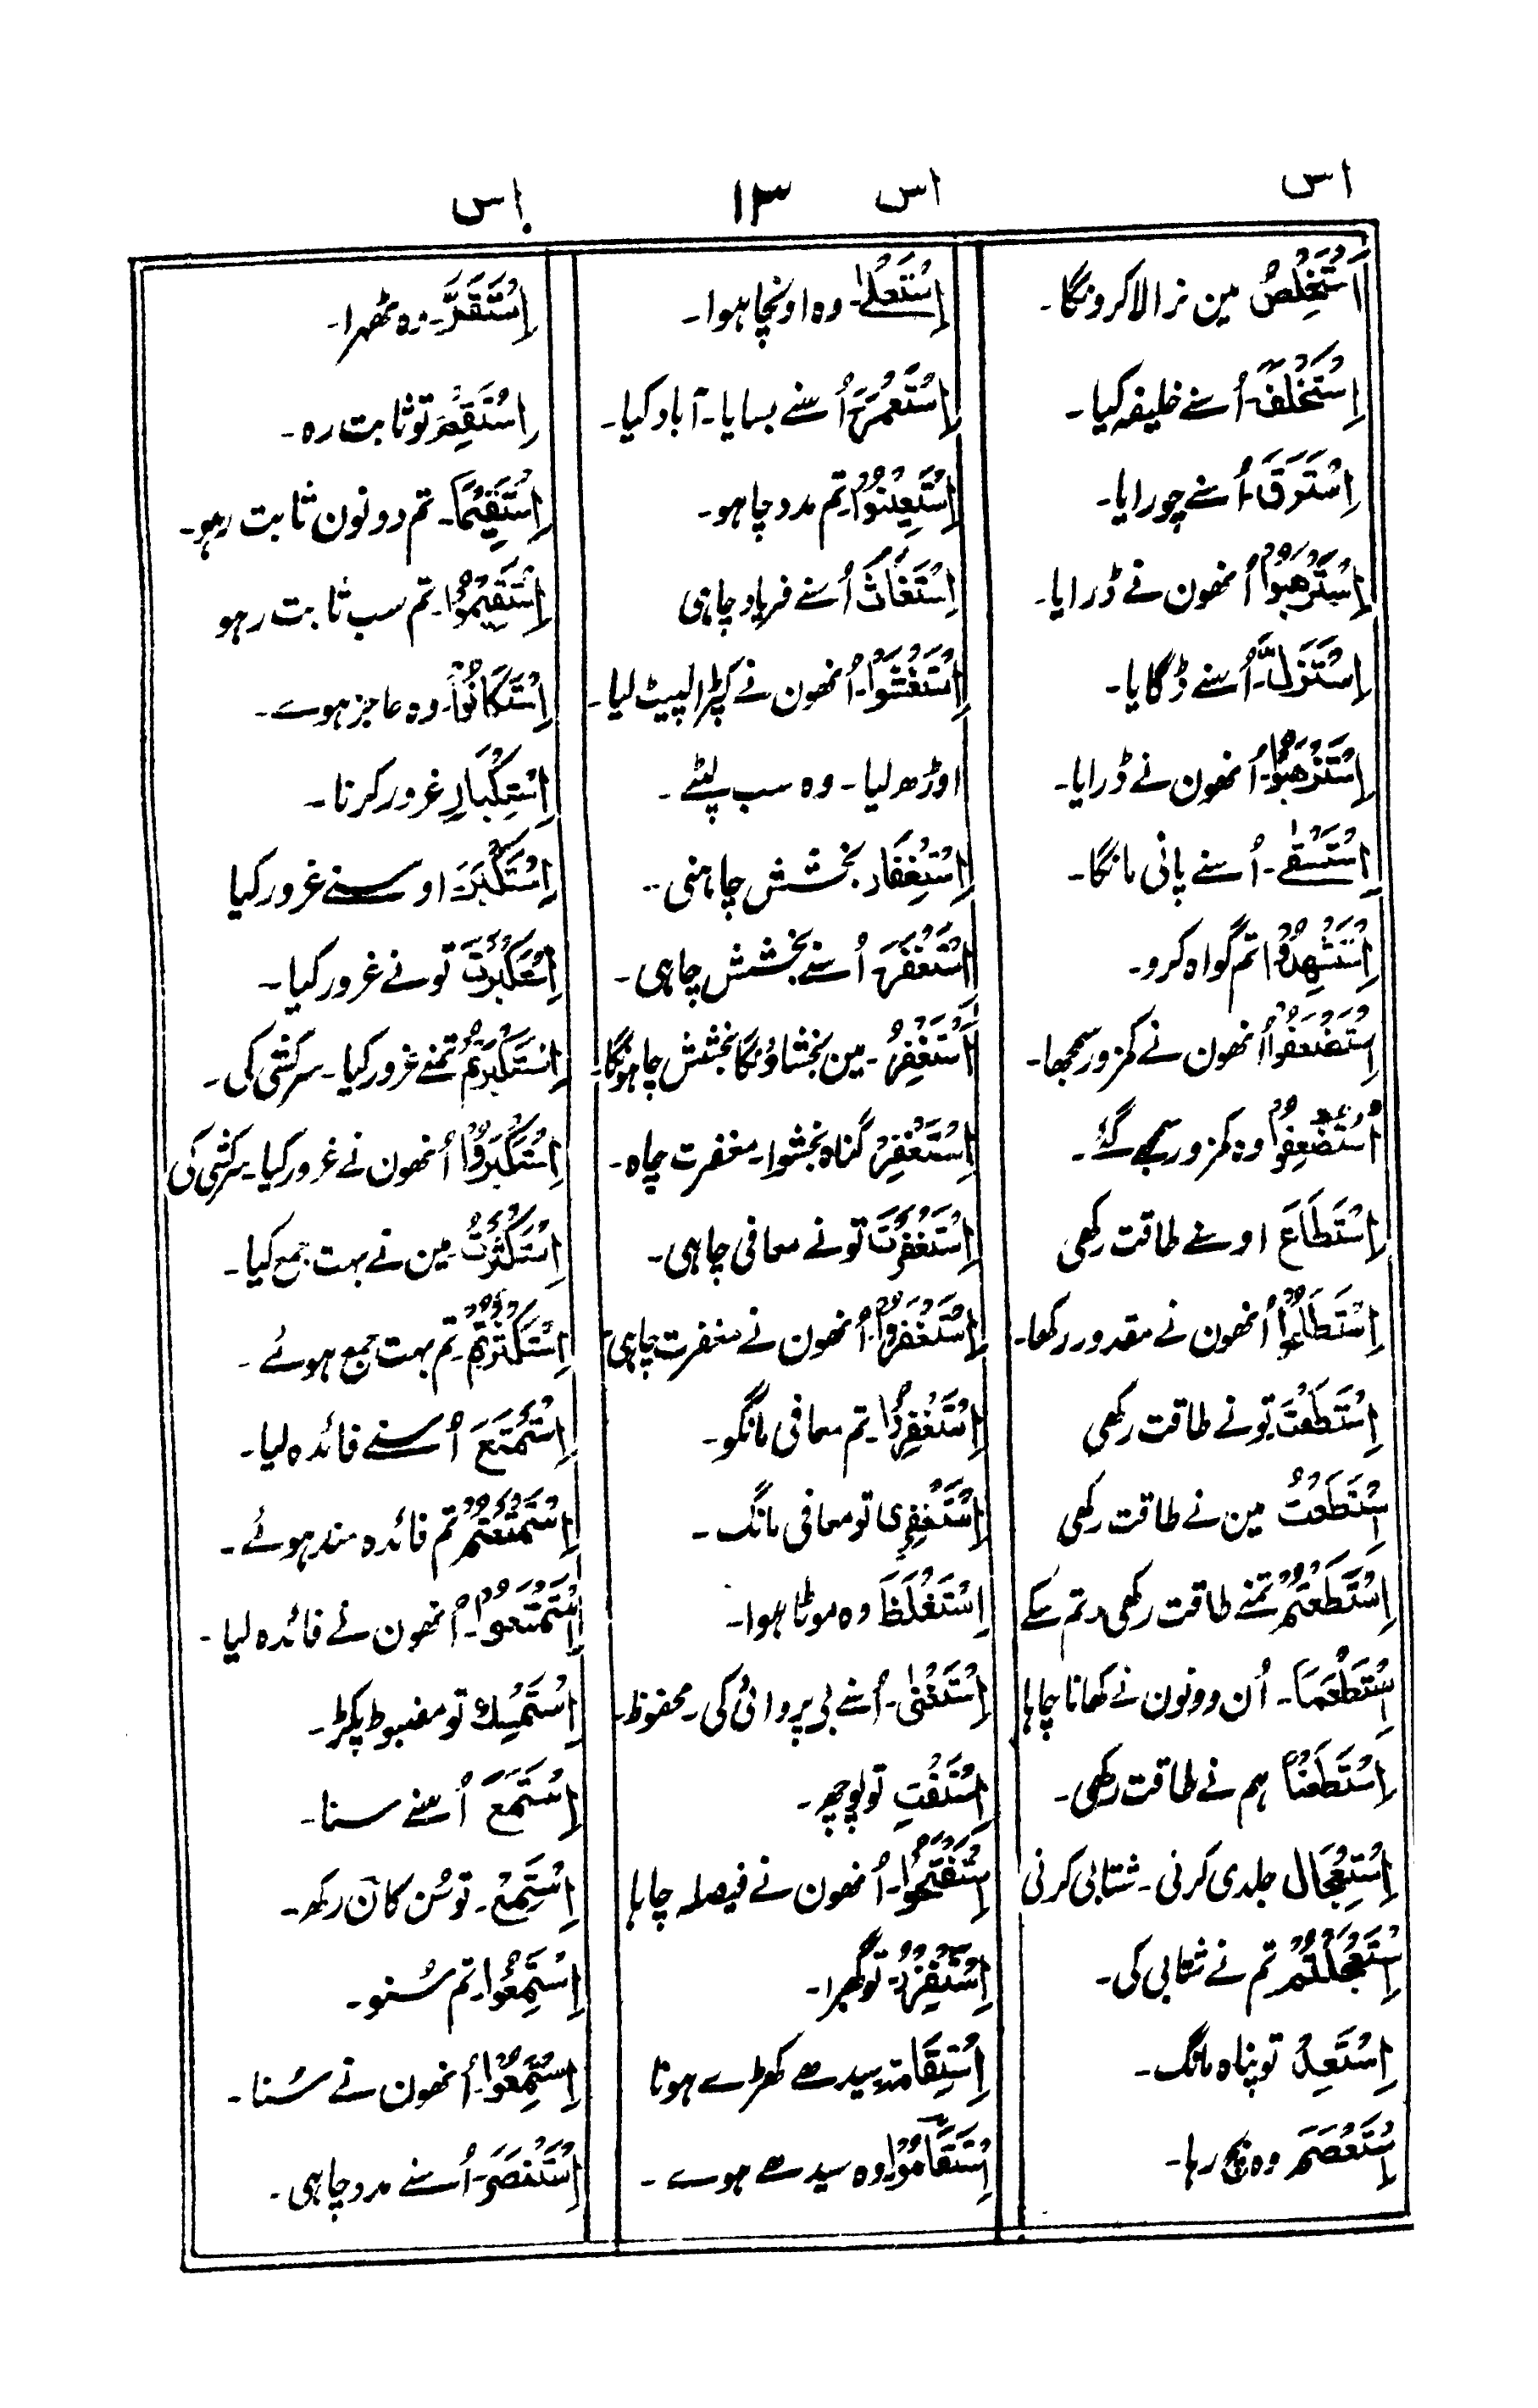 اس
اس
۱۳
اِس
اَسْتَخْلِصُ مین نرالا کرونگا۔
اِسْتَخْلَفَ۔ اُسنے خلیفہ کیا۔
اِسْتَرَقَ۔ اُسنے چورایا۔
اِسْتَرْهَبُوْا اُنھون نے ڈرایا۔
اِسْتَزَلَّ۔ اُسنے ڈگایا۔
اِسْتَرْهَبُوْا۔ اُنھون نے ڈرایا۔
اِسْتَسْقٰے۔ اُسنے پانی مانگا۔
اِسْتَشْهِدُوْا تم گواہ کرو۔
اِسْتَضْعَفُوْا اُنھون نے کمزور سمجھا۔
اُسْتُضْعِفُوْا وہ کمزور سمجھے گئے۔
اِسْتَطَاعَ اوسنے طاقت رکھی
اِسْتَطَاعُوْا اُنھون نے مقدور رکھا۔
اِسْتَطَعْتَ تونے طاقت رکھی
اِسْتَطَعْتُ مین نے طاقت رکھی
اِسْتَطَعْتُمْ تمنے طاقت رکھی۔ تم سکے
اِسْتَطْعَمَا۔ اُن دونون نے کھانا چاہا
اِسْتَطَعْنَا ہم نے طاقت رکھی۔
اِسْتِعْجَال جلدی کرنی۔ شتابی کرنی
اِسْتَعْجَلْتُمْ تم نے شتابی کی۔
اِسْتَعِذْ تو پناہ مانگ۔
اِسْتَعْصَمَ وہ بچ رہا۔
اِسْتَعْلٰے۔ وہ اونچا ہوا۔
اِسْتَعْمَرَ اُسنے بسایا۔ آباد کیا۔
اِسْتَعِيْنُوْا۔ تم مدد چاہو۔
اِسْتَغَاثَ اُسنے فریاد چاہی
اِسْتَغْشَوْا۔ اُنھون نے کپڑا لپیٹ لیا۔
اوڑھ لیا۔ وہ سب لپٹے۔
اِسْتِغْفَار بخشش چاہنی۔
اِسْتَغْفَرَ اُسنے بخشش چاہی۔
اَسْتَغْفِرُ۔ مین بخشاؤنگا بخشش چاہونگا۔
اِسْتَغْفِرْ گناہ بخشوا۔ مغفرت چاہ۔
اِسْتَغْفَرْتَ تونے معافی چاہی۔
اِسْتَغْفَرُوْا۔ اُنھون نے مغفرت چاہی
اِسْتَغْفِرُوْا۔ تم معافی مانگو۔
اِسْتَغْفِرِى تو معافی مانگ۔
اِسْتَغْلَظَ وہ موٹا ہوا۔
اِسْتَغْنٰى۔ اُسنے بی پروائی کی۔ محفوظ۔
اِسْتَفْتِ تو پوچھ۔
اِسْتَفْتَحُوْا۔ اُنھون نے فیصلہ چاہا
اِسْتَفْزِزْ۔ تو گھبرا۔
اِسْتِقَامَة سیدھے کھڑے ہونا
اِسْتَقَامُوْا وہ سیدھے ہوے۔
اِسْتَقَرَّ۔ وہ ٹھہرا۔
اِسْتَقِمْ تو ثابت رہ۔
اِسْتَقِيْمَا۔ تم دونون ثابت رہو۔
اِسْتَقِيْمُوْا۔ تم سب ثابت رہو
اِسْتَكَانُوْا۔ وہ عاجز ہوے۔
اِسْتِكْبَارِ غرور کرنا۔
اِسْتَكْبَرَ اوسنے غرور کیا
اِسْتَكْبَرْتَ تونے غرور کیا۔
اِسْتَكْبَرْتُمْ تمنے غرور کیا۔ سرکشی کی۔
اِسْتَكْبَرُوْا اُنھون نے غرور کیا۔ سرکشی کی
اِسْتَكْثَرْتُ۔ مین نے بہت جمع کیا۔
اِسْتَكْثَرْتُمْ۔ تم بہت جمع ہوئے۔
اِسْتَمْتَعَ اُسنے فائدہ لیا۔
اِسْتَمْتَعْتُمْ تم فائدہ مند ہوئے۔
اِسْتَمْتَعُوْا۔ اُنھون نے فائدہ لیا۔
اِسْتَمْسِكْ تو مضبوط پکڑ۔
اِسْتَمَعَ اُسنے سنا۔
اِسْتَمِعْ۔ تو سُن کان رکھ۔
اِسْتَمِعُوْا۔ تم سُنو۔
اِسْتَمَعُوْا۔ اُنھون نے سُنا۔
اِسْتَنْصَرَ۔ اُسنے مدد چاہی۔